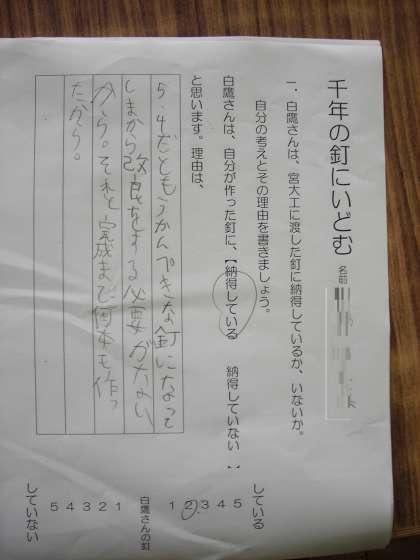 千年の釘にいどむ
名前
一．白鷹さんは、宮大工に渡した釘に納得しているか、いないか。
自分の考えとその理由を書きましょう。
白鷹さんは、自分が作った釘に、【納得している　納得していない　】
と思います。理由は、
5・4だともうかんぺきな釘になって
しまから改良をする必要がない
から。それと完成まで何本も作っ
たから。
している
５４３２１
白鷹さんの釘
１２３４５
していない